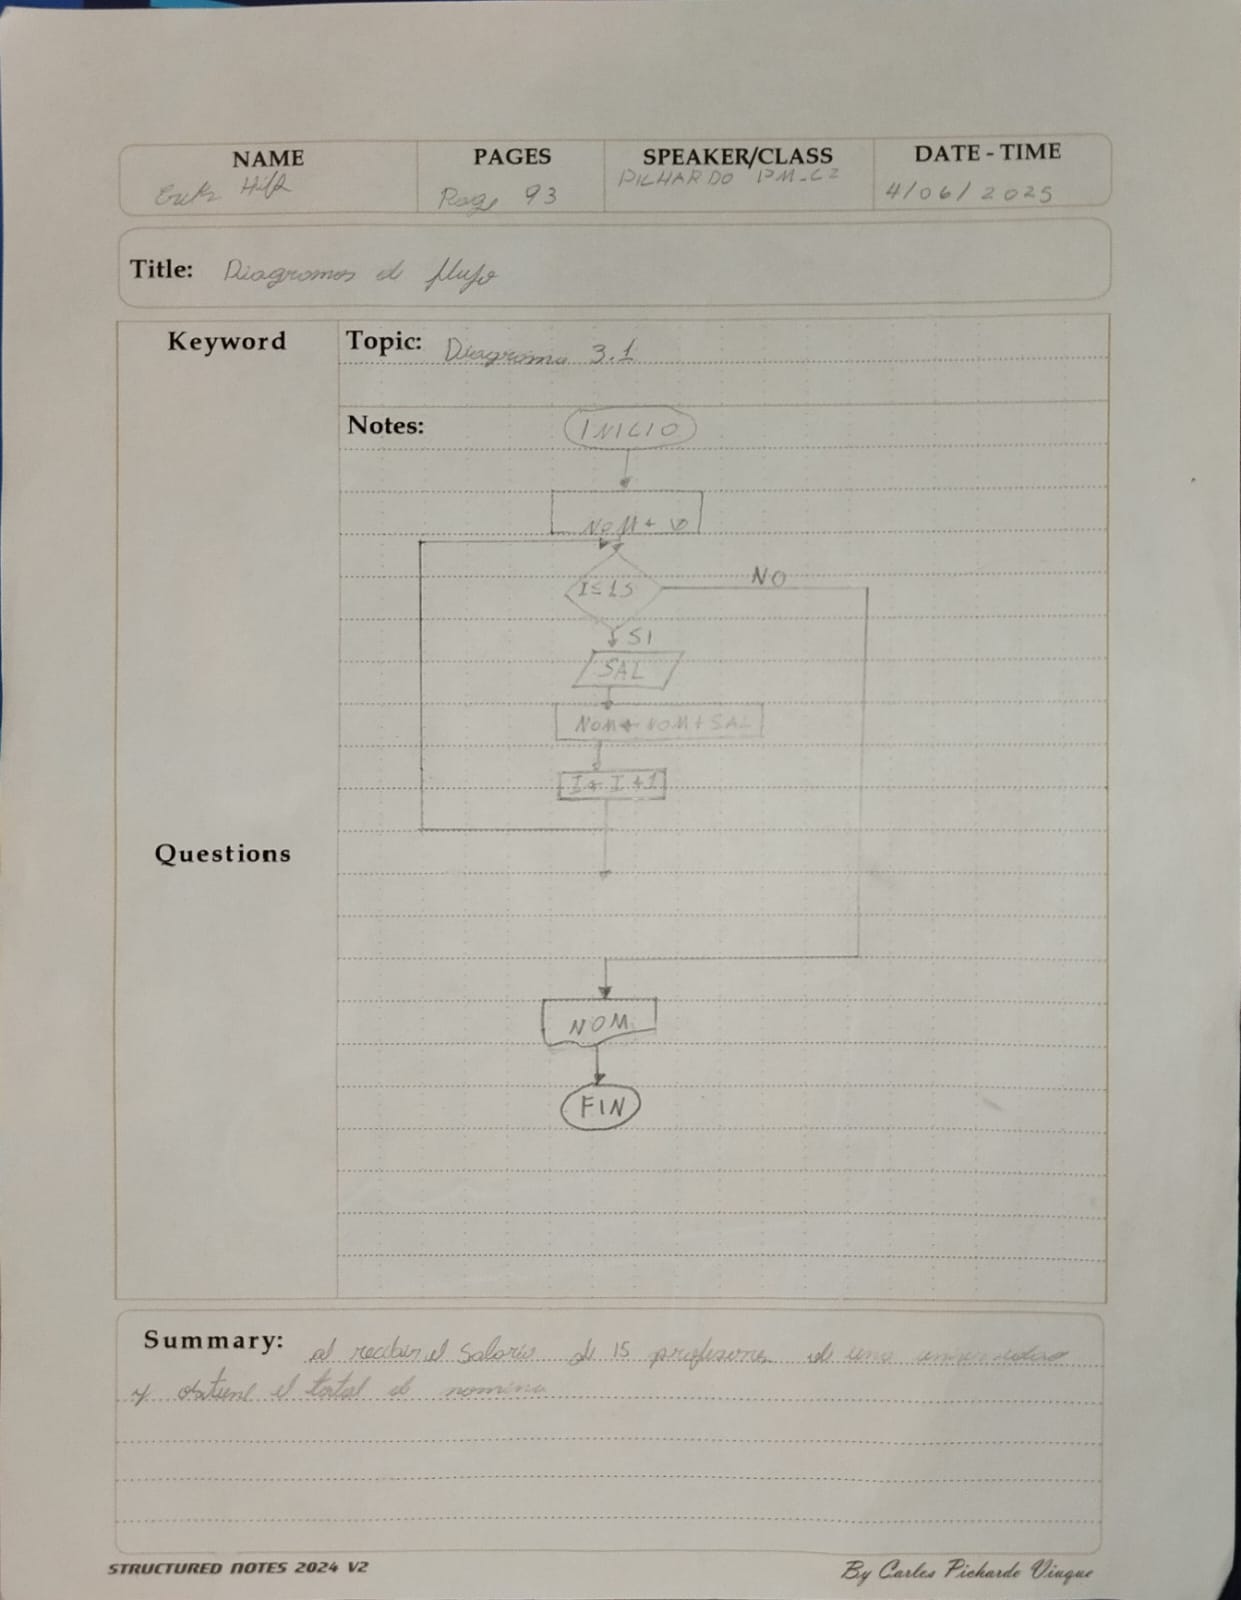 NAME PAGES SPEAKER/CLASS DATE - TIME
Pag 93 PICHARDO PM-C2 4/06/2025
Title: Diagramas d flujo
Keyword Topic: Diagrama 3.1
Notes: INICIO
NOM ←
I ≤ 15 NO
SI
SAL
NOM ← NOM + SAL
I ← I + 1
Questions
NOM
FIN
Summary: al recibir el salario de 15 profesores de una universidad
y obtiene el total d nomina
STRUCTURED NOTES 2024 V2 By Carlos Pichardo Viuque